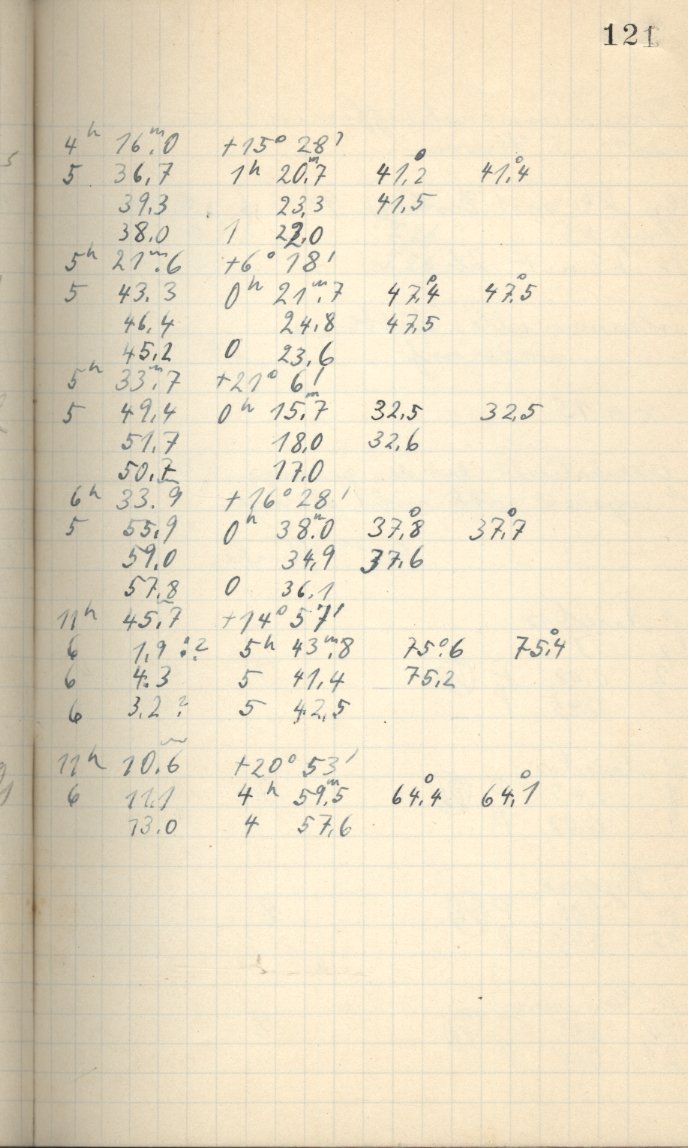 121
4ʰ 16ᵐ.0 +15° 28'
5 36.7 1ʰ 20ᵐ.7 41°.2 41°.4
39.3 23.3 41.5
38.0 1 22.0
5ʰ 21ᵐ.6 +6° 18'
5 43.3 0ʰ 21ᵐ.7 47°.4 47°.5
46.4 24.8 47.5
45.2 0 23.6
5ʰ 33ᵐ.7 +21° 6'
5 49.4 0ʰ 15ᵐ.7 32.5 32.5
51.7 18.0 32.6
50.7 17.0
6ʰ 33.9 +16° 28'
5 55.9 0ʰ 38ᵐ.0 37°.8 37°.7
59.0 34.9 37.6
57.8 0 36.1
11ʰ 45.7 +14° 57'
6 1.9:? 5ʰ 43ᵐ.8 75°.6 75°.4
6 4.3 5 41.4 75.2
6 3.2? 5 42.5
11ʰ 10ᵐ.6 +20° 53'
6 11.1 4ʰ 59ᵐ.5 64°.4 64°.1
13.0 4 57.6